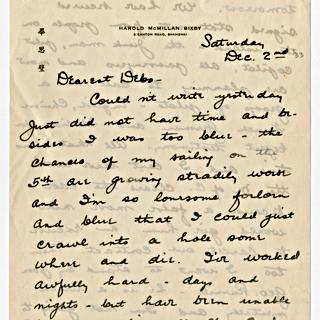 HAROLD McMILLAN BIXBY
2 CANTON ROAD, SHANGHAI
Saturday
Dec. 2nd '33
Dearest Debs-
Couldn't write yesterday
Just did not have time and be-
sides I was too blue - the
chances of my sailing on the
5th are growing steadily worse
and I'm so lonesome forlorn
and blue that I could just
crawl into a hole some
where and die. I've worked
awfully hard - days and
nights - but have been unable